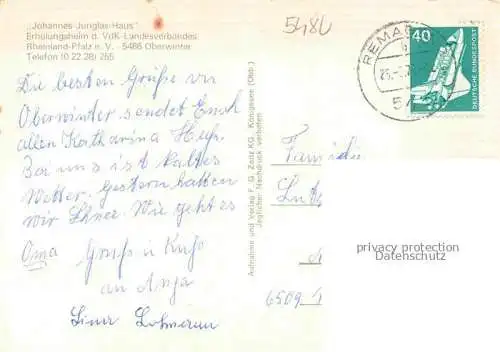 „Johannes-Junglas-Haus"
Erholungsheim d. VdK-Landesverbandes
Rheinland-Pfalz e. V. - 5486 Oberwinter
Telefon (0 22 28) 255
5480
REMAG
40
DEUTSCHE BUNDESPOST
Die besten Grüße von
Oberwinter sendet Euch
allen Katharina
Bei uns ist kaltes
Wetter. Gestern hatten
wir Schnee. Wie geht es
Oma Gruß u Kuß
an Anja
Aufnahme und Verlag F. G. Zeitz KG., Königsee (Obb.)
Jeglicher Nachdruck verboten
Familie
6509
privacy protection
Datenschutz